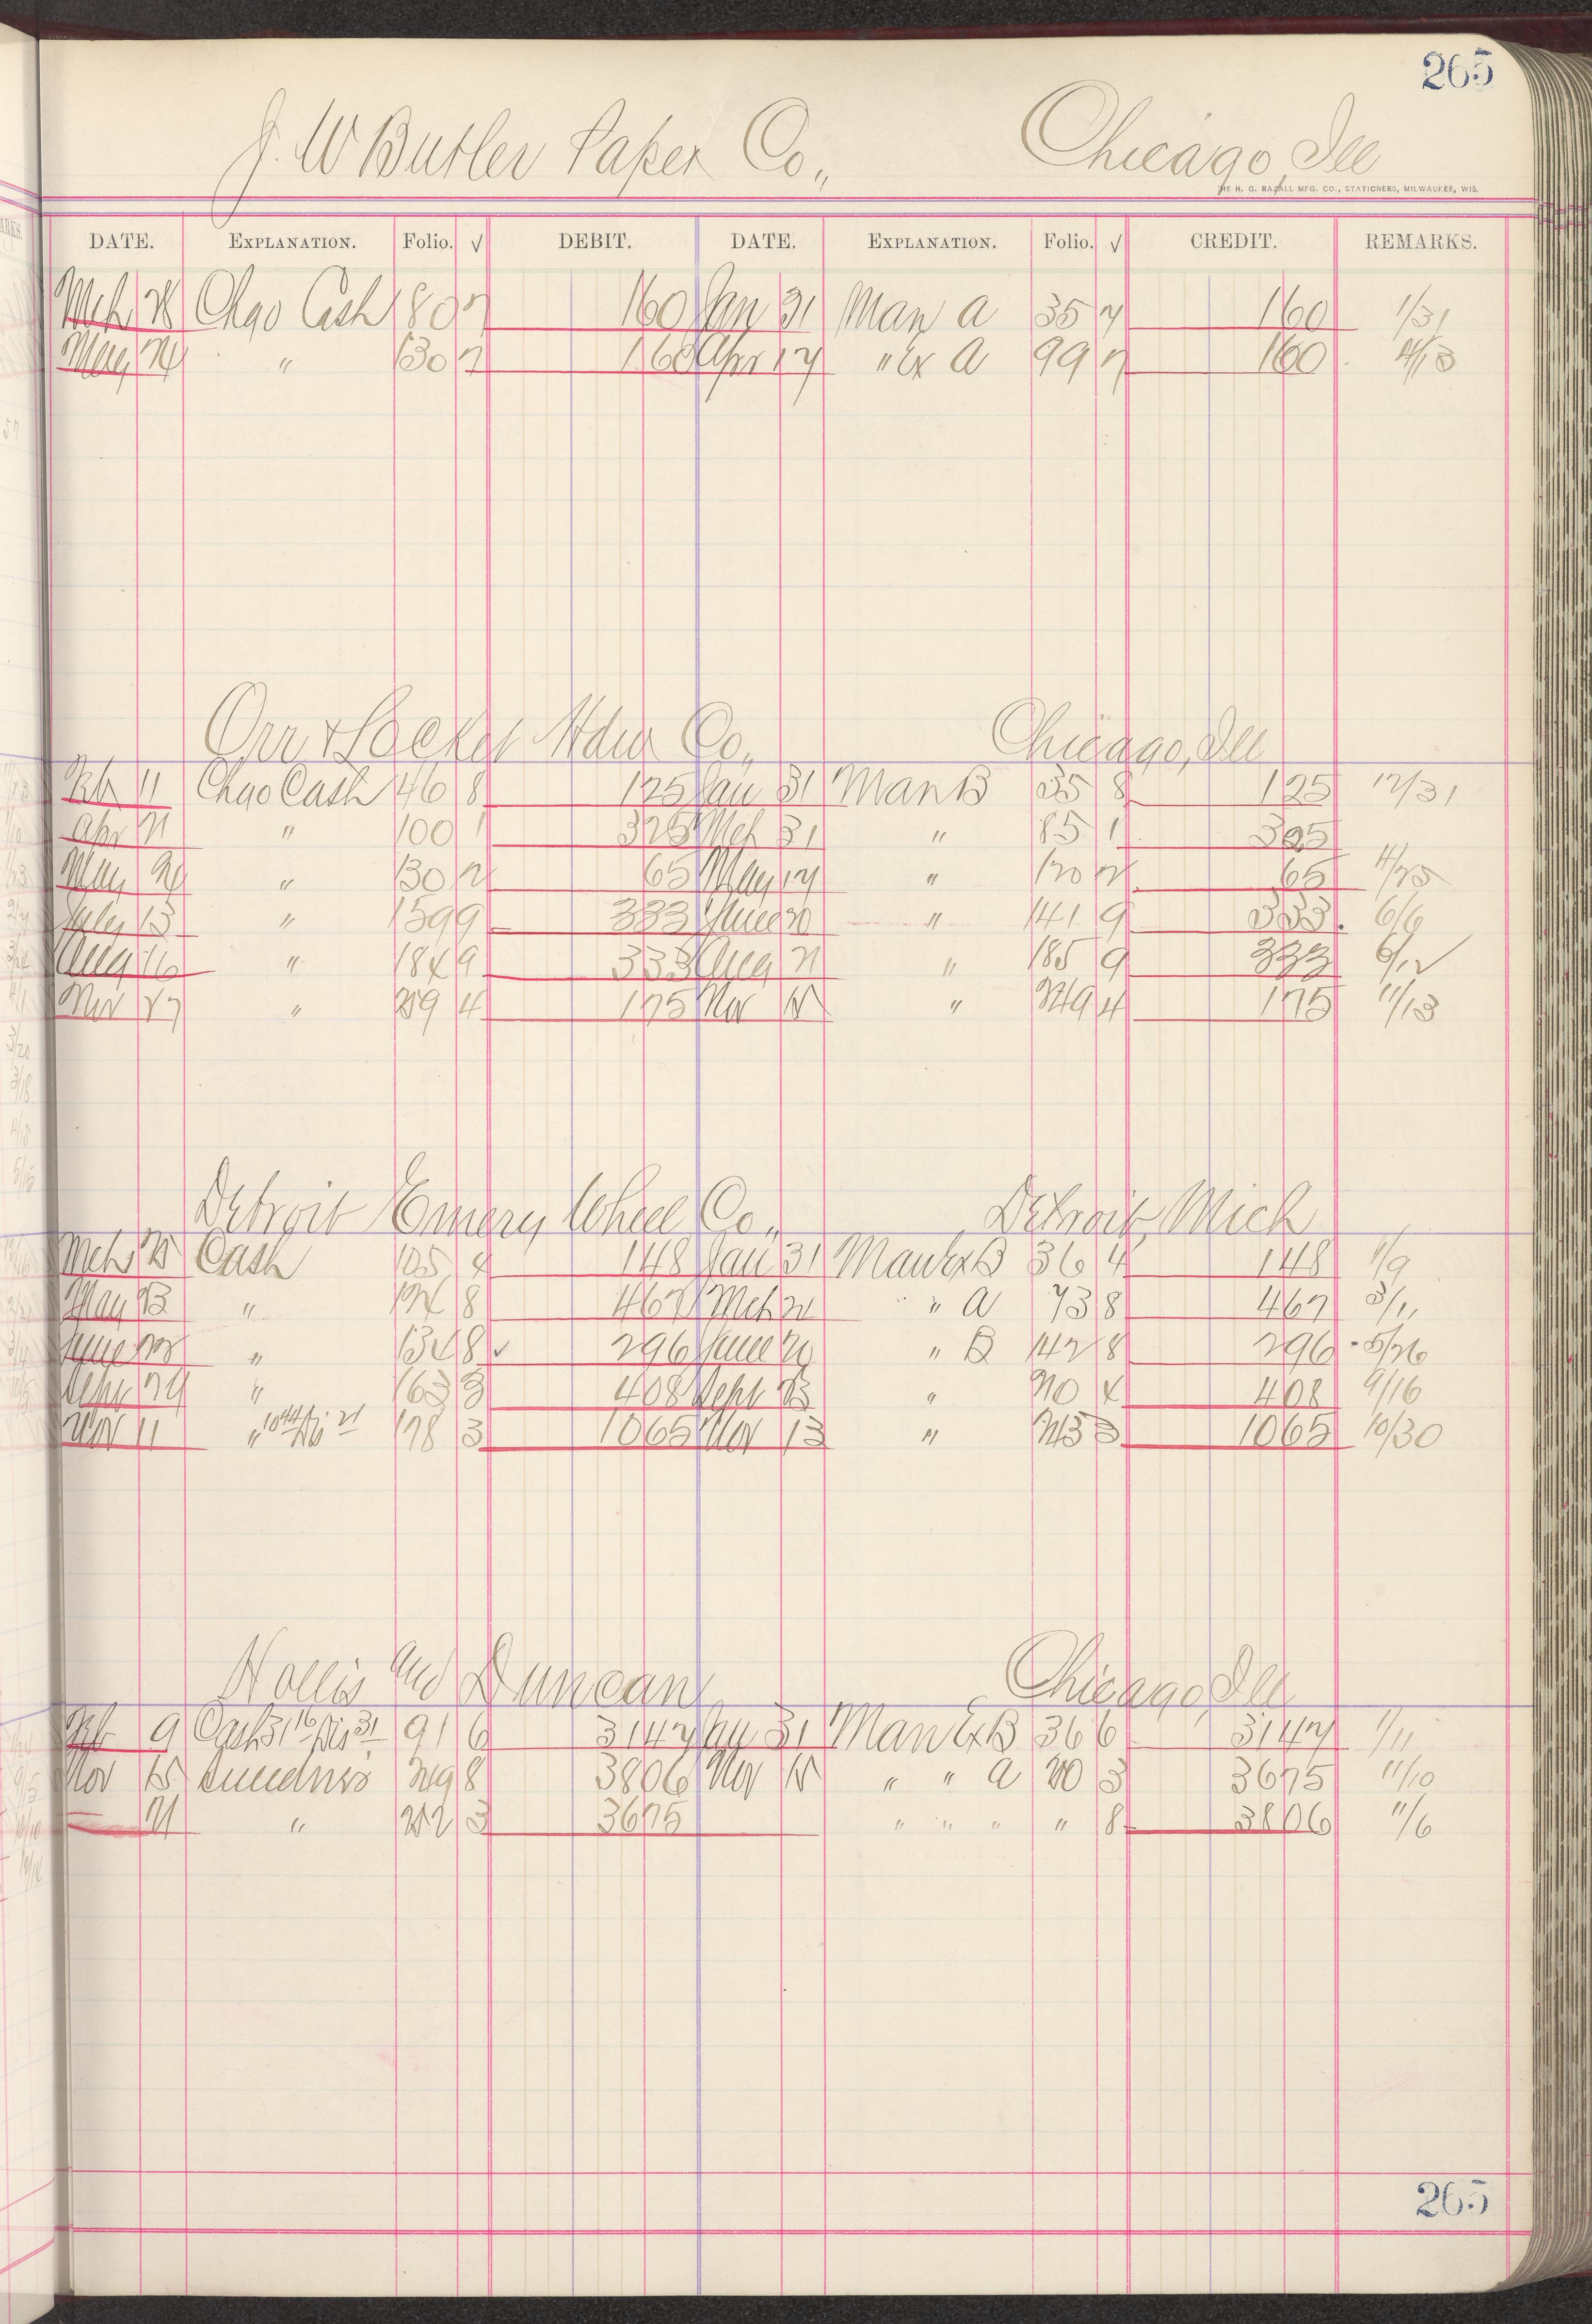 265
J. W Butler Paper Co., Chicago, Ill
THE H. G. RAZALL MFG. CO., STATIONERS, MILWAUKEE, WIS.
DATE. EXPLANATION. Folio. √ DEBIT. DATE. EXPLANATION. Folio. √ CREDIT. REMARKS.
Mch 28 Chgo Cash 80 2 160 Jan 31 Man A 35 2 160 1/31
May 24 " 130 2 160 Apr 17 " Ex A 99 2 160 4/13
Orr & Locket Hdw Co., Chicago, Ill
Feb 11 Chgo Cash 46 8 125 Jan 31 Man B 35 8 125 12/31
Apr 21 " 100 1 325 Mch 31 " 85 1 325
May 24 " 130 2 65 May 17 " 120 2 65 4/25
July 13 " 159 9 333 June 20 " 141 9 333 6/6
Aug 16 " 184 9 333 Aug 21 " 185 9 333 6/12
Nov 27 " 259 4 175 Nov 18 " 249 4 175 11/13
Detroit Emery Wheel Co., Detroit, Mich
Mch 25 Cash 105 4 148 Jan 31 Man Ex B 36 4 148 1/9
May 13 " 124 8 467 Mch 21 " A 73 8 467 3/11
June 22 " 134 8 296 June 20 " B 142 8 296 5/26
Sept 24 " 163 3 408 Sept 23 " 210 4 408 9/16
Nov 11 " 178 3 1065 Nov 13 " 245 3 1065 10/30
Hollis and Duncan Chicago, Ill
Feb 9 Cash 31 16 Dis 31 91 6 3147 Jan 31 Man Ex B 36 6 3147 1/11
Nov 15 Sundries 249 8 3806 Nov 18 " " A 3 3675 11/10
21 " 252 3 3675 " " " " 8 3806 11/6
265